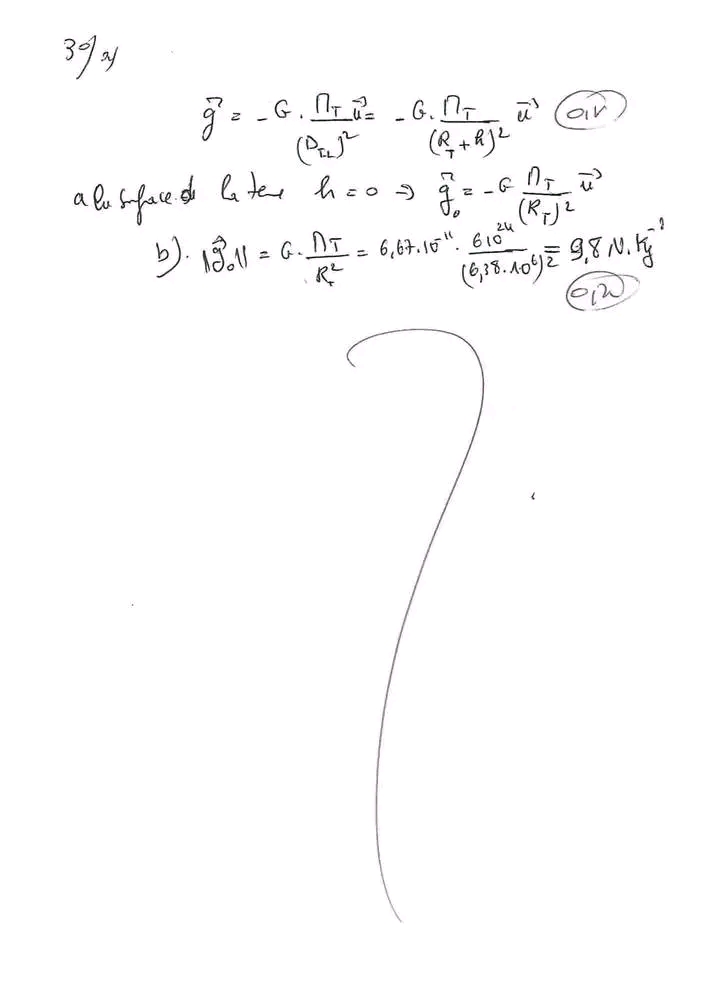 3°/ a)
g⃗ = - G . M_T/(D_TL)² u⃗ = - G. M_T/(R_T + h)² u⃗
a la surface de la terre h = 0 => g⃗₀ = - G M_T/(R_T)² u⃗
b). ||g⃗₀|| = G. M_T/R_T² = 6,67.10⁻¹¹ . 6 10²⁴/(6,38.10⁶)² = 9,8 N.Kg⁻¹